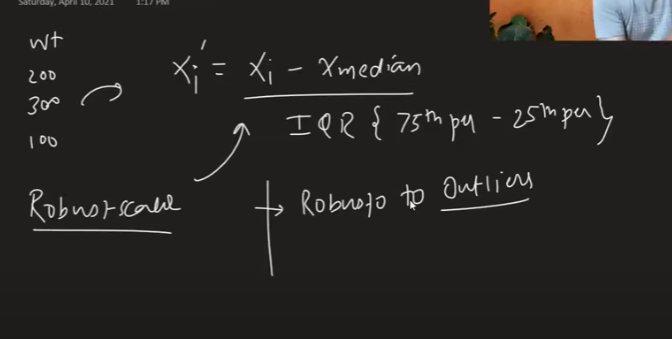 Saturday, April 10, 2021 1:17 PM
wt
200
300
100
xi' = xi - xmedian
IQR { 75th per - 25th per }
Robust scale
→ Robust to Outliers